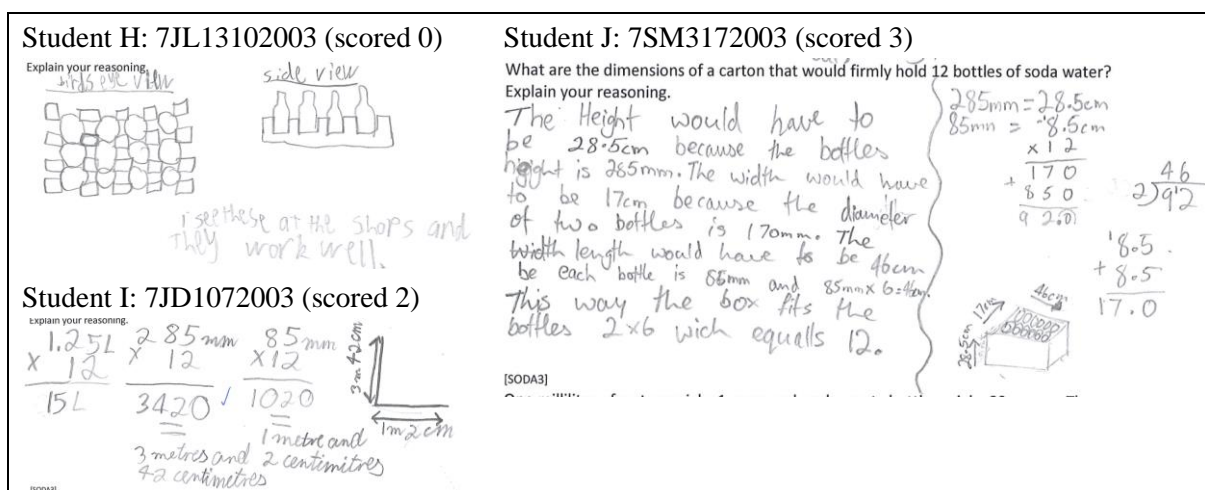 Student H: 7JL13102003 (scored 0)
Explain your reasoning.
birds eye view
side view
i see these at the shops and
they work well.
Student I: 7JD1072003 (scored 2)
Explain your reasoning.
1.25L
x 12
15L
285mm
x 12
3420
3 metres and
42 centimetres
85mm
x12
1020
1 metre and
2 centimetres
3m 42cm
1m 2cm
Student J: 7SM3172003 (scored 3)
What are the dimensions of a carton that would firmly hold 12 bottles of soda water?
Explain your reasoning.
The Height would have to
be 28.5cm because the bottles
height is 285mm. The width would have
to be 17cm because the diameter
of two bottles is 170mm. The
width length would have to be 46cm
be each bottle is 85mm and 85mm x 6=46cm.
This way the box fits the
bottles 2x6 wich equalls 12.
285mm=28.5cm
85mm = 8.5cm
x12
170
+ 850
92.0
46
2)92
8.5
+ 8.5
17.0
46cm
17cm
28.5cm
[SODA3]